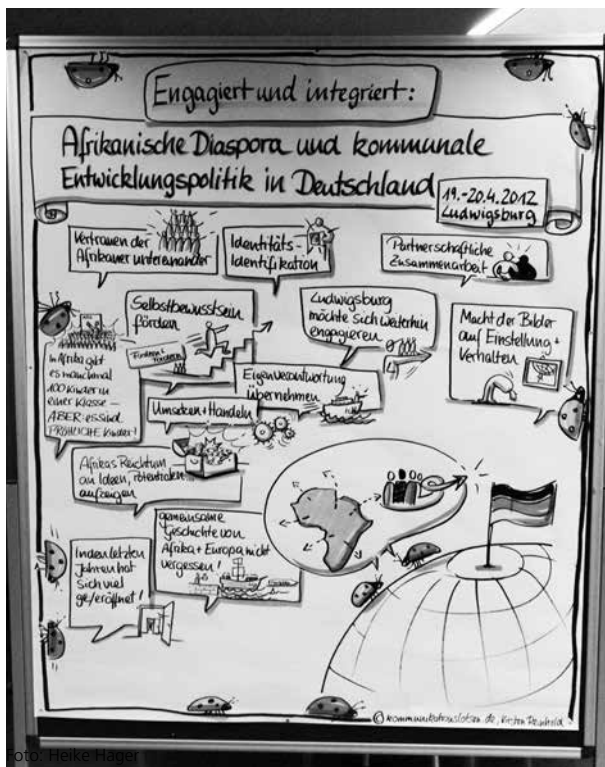 Engagiert und integriert:
Afrikanische Diaspora und kommunale
Entwicklungspolitik in Deutschland
19.-20.4.2012
Ludwigsburg
Vertrauen der
Afrikaner untereinander
Identitäts-
Identifikation
Partnerschaftliche
Zusammenarbeit
Selbstbewusstsein
fördern
Fördern &
fordern
Ludwigsburg
möchte sich weiterhin
engagieren
Macht der Bilder
auf Einstellung +
Verhalten
In Afrika gibt
es manchmal
100 Kinder in
einer Klasse –
ABER es sind
FRÖHLICHE Kinder!
Eigenverantwortung
übernehmen
Umsetzen + Handeln
Afrikas Reichtum
an Ideen, Potentialen
aufzeigen
gemeinsame
Geschichte von
Afrika + Europa nicht
vergessen!
In den letzten
Jahren hat
sich viel
ge/eröffnet!
© kommunikationslotsen.de,
Foto: Heike Hager